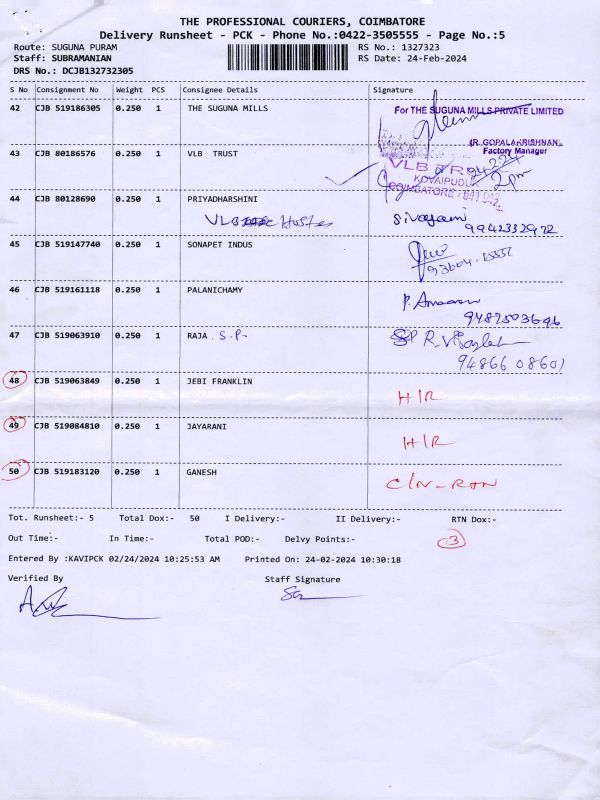 THE PROFESSIONAL COURIERS, COIMBATORE
Delivery Runsheet - PCK - Phone No.:0422-3505555 - Page No.:5
Route: SUGUNA PURAM RS No.: 1327323
Staff: SUBRAMANIAN RS Date: 24-Feb-2024
DRS No.: DCJB132732305
S No Consignment No Weight PCS Consignee Details Signature
42 CJB 519186305 0.250 1 THE SUGUNA MILLS For THE SUGUNA MILLS PRIVATE LIMITED
(R. GOPALAKRISHNAN)
Factory Manager
43 CJB 80186576 0.250 1 VLB TRUST VLB TRUST
KOVAIPUDUR
COIMBATORE - 641 042
2pm
44 CJB 80128690 0.250 1 PRIYADHARSHINI
VLB Sivagam
9942332972
45 CJB 519147740 0.250 1 SONAPET INDUS
46 CJB 519161118 0.250 1 PALANICHAMY
9487503696
47 CJB 519063910 0.250 1 RAJA . S.P-
94866 08601
48 CJB 519063849 0.250 1 JEBI FRANKLIN H/R
49 CJB 519084810 0.250 1 JAYARANI H/R
50 CJB 519183120 0.250 1 GANESH C/N-RTN
Tot. Runsheet:- 5 Total Dox:- 50 I Delivery:- II Delivery:- RTN Dox:-
Out Time:- In Time:- Total POD:- Delvy Points:- 3
Entered By :KAVIPCK 02/24/2024 10:25:53 AM Printed On: 24-02-2024 10:30:18
Verified By Staff Signature